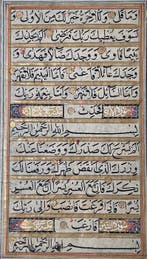 وما قلى وللآخرة خير لك من الأولى ول
سوف يعطيك ربك فترضى ألم يجدك
يتيما فآوى ووجدك ضالا فهدى و
وجدك عائلا فأغنى فأما اليتيم فلا تقهر و
أما السائل فلا تنهر وأما بنعمة ربك
فحدث
بسم الله الرحمن الرحيم
ألم نشرح لك صدرك ووضعنا عنك
وزرك الذي أنقض ظهرك ورفعنا لك
ذكرك فإن مع العسر يسرا إن مع العسر
يسرا فإذا فرغت فانصب وإلى ربك
فارغب
بسم الله الرحمن الرحيم